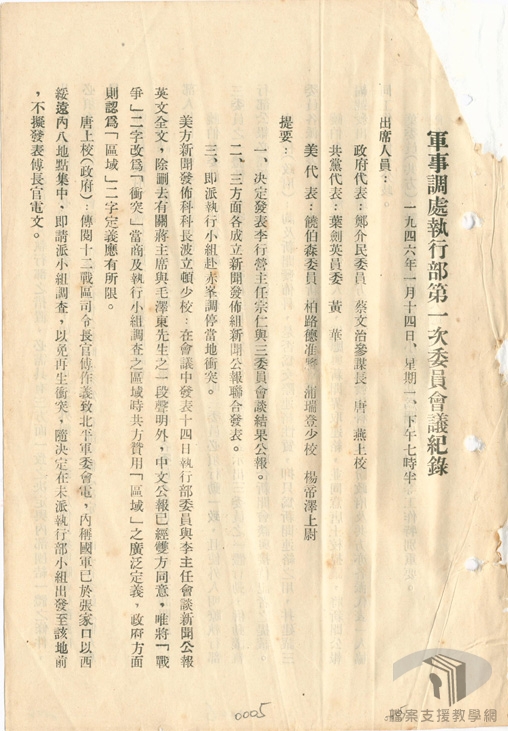 軍事調處執行部第一次委員會議紀錄
一九四六年一月十四日、星期一、下午七時半
出席人員：
政府代表：鄭介民委員 蔡文治參謀長 唐 燕上校
共黨代表：葉劍英員委 黃 華
美代表：饒伯森委員 柏路德准將 浦瑞登少校 楊帝澤上尉
提要：
一、決定發表李行營主任宗仁與三委員會談結果公報。
二、三方面各成立新聞發佈組新聞公報聯合發表。
三、即派執行小組赴赤峯調停當地衝突。
美方新聞發佈科科長波立頓少校：在會議中發表十四日執行部委員與李主任會談新聞公報
英文全文，除刪去有關蔣主席與毛澤東先生之一段聲明外，中文公報已經雙方同意，唯將「戰
爭」二字改爲「衝突」當商及執行小組調查之區域時共方贊用「區域」之廣泛定義，政府方面
則認爲「區域」二字定義應有所限。
唐上校（政府）：傳閱十二戰區司令長官傅作義致北平軍委會電，內稱國軍已於張家口以西
綏遠內八地點集中，即請派小組調查，以免再生衝突，隨決定在未派執行部小組出發至該地前
，不擬發表傅長官電文。
0005
檔案支援教學網